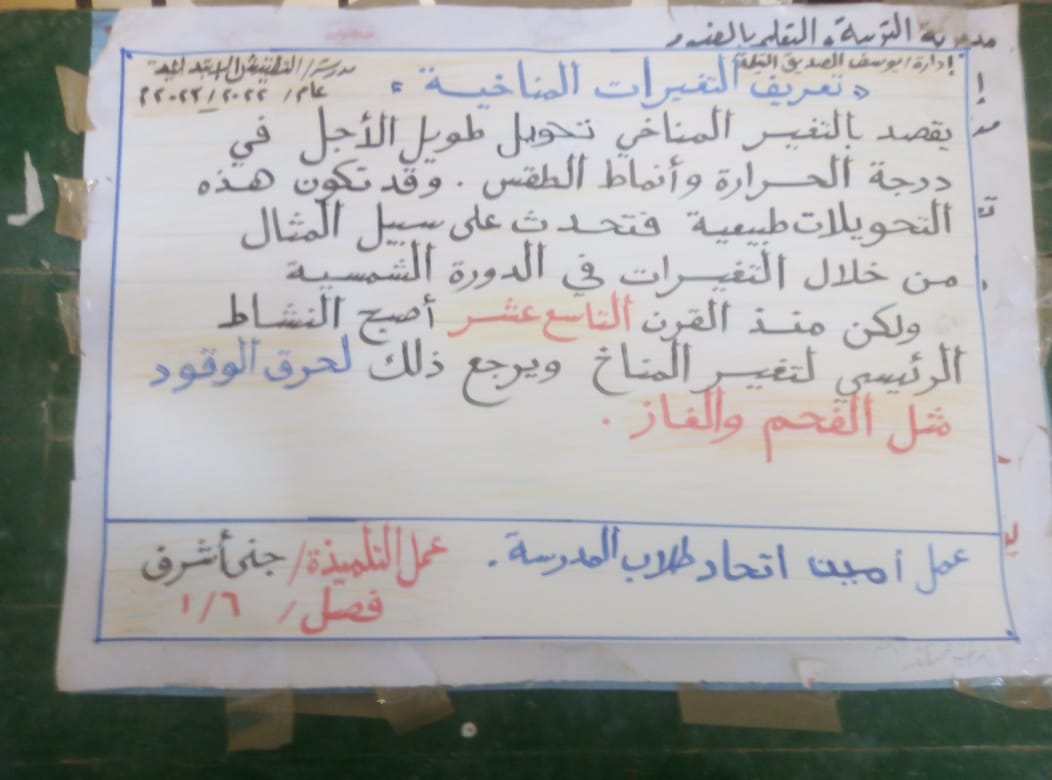 مديرية التربية والتعليم بالفيوم
إدارة / يوسف الصديق التعليمية
مدرسة / التفتيش الابتدائية
عام / ٢٠٢٢ / ٢٠٢٣م
« تعريف التغيرات المناخية »
يقصد بالتغير المناخي تحويل طويل الأجل في
درجة الحرارة وأنماط الطقس . وقد تكون هذه
التحويلات طبيعية فتحدث على سبيل المثال
من خلال التغيرات في الدورة الشمسية
ولكن منذ القرن التاسع عشر أصبح النشاط
الرئيسي لتغير المناخ ويرجع ذلك لحرق الوقود
مثل الفحم والغاز .
عمل أمين اتحاد طلاب المدرسة .
عمل التلميذة / جنى أشرف
فصل / ٦ / ١